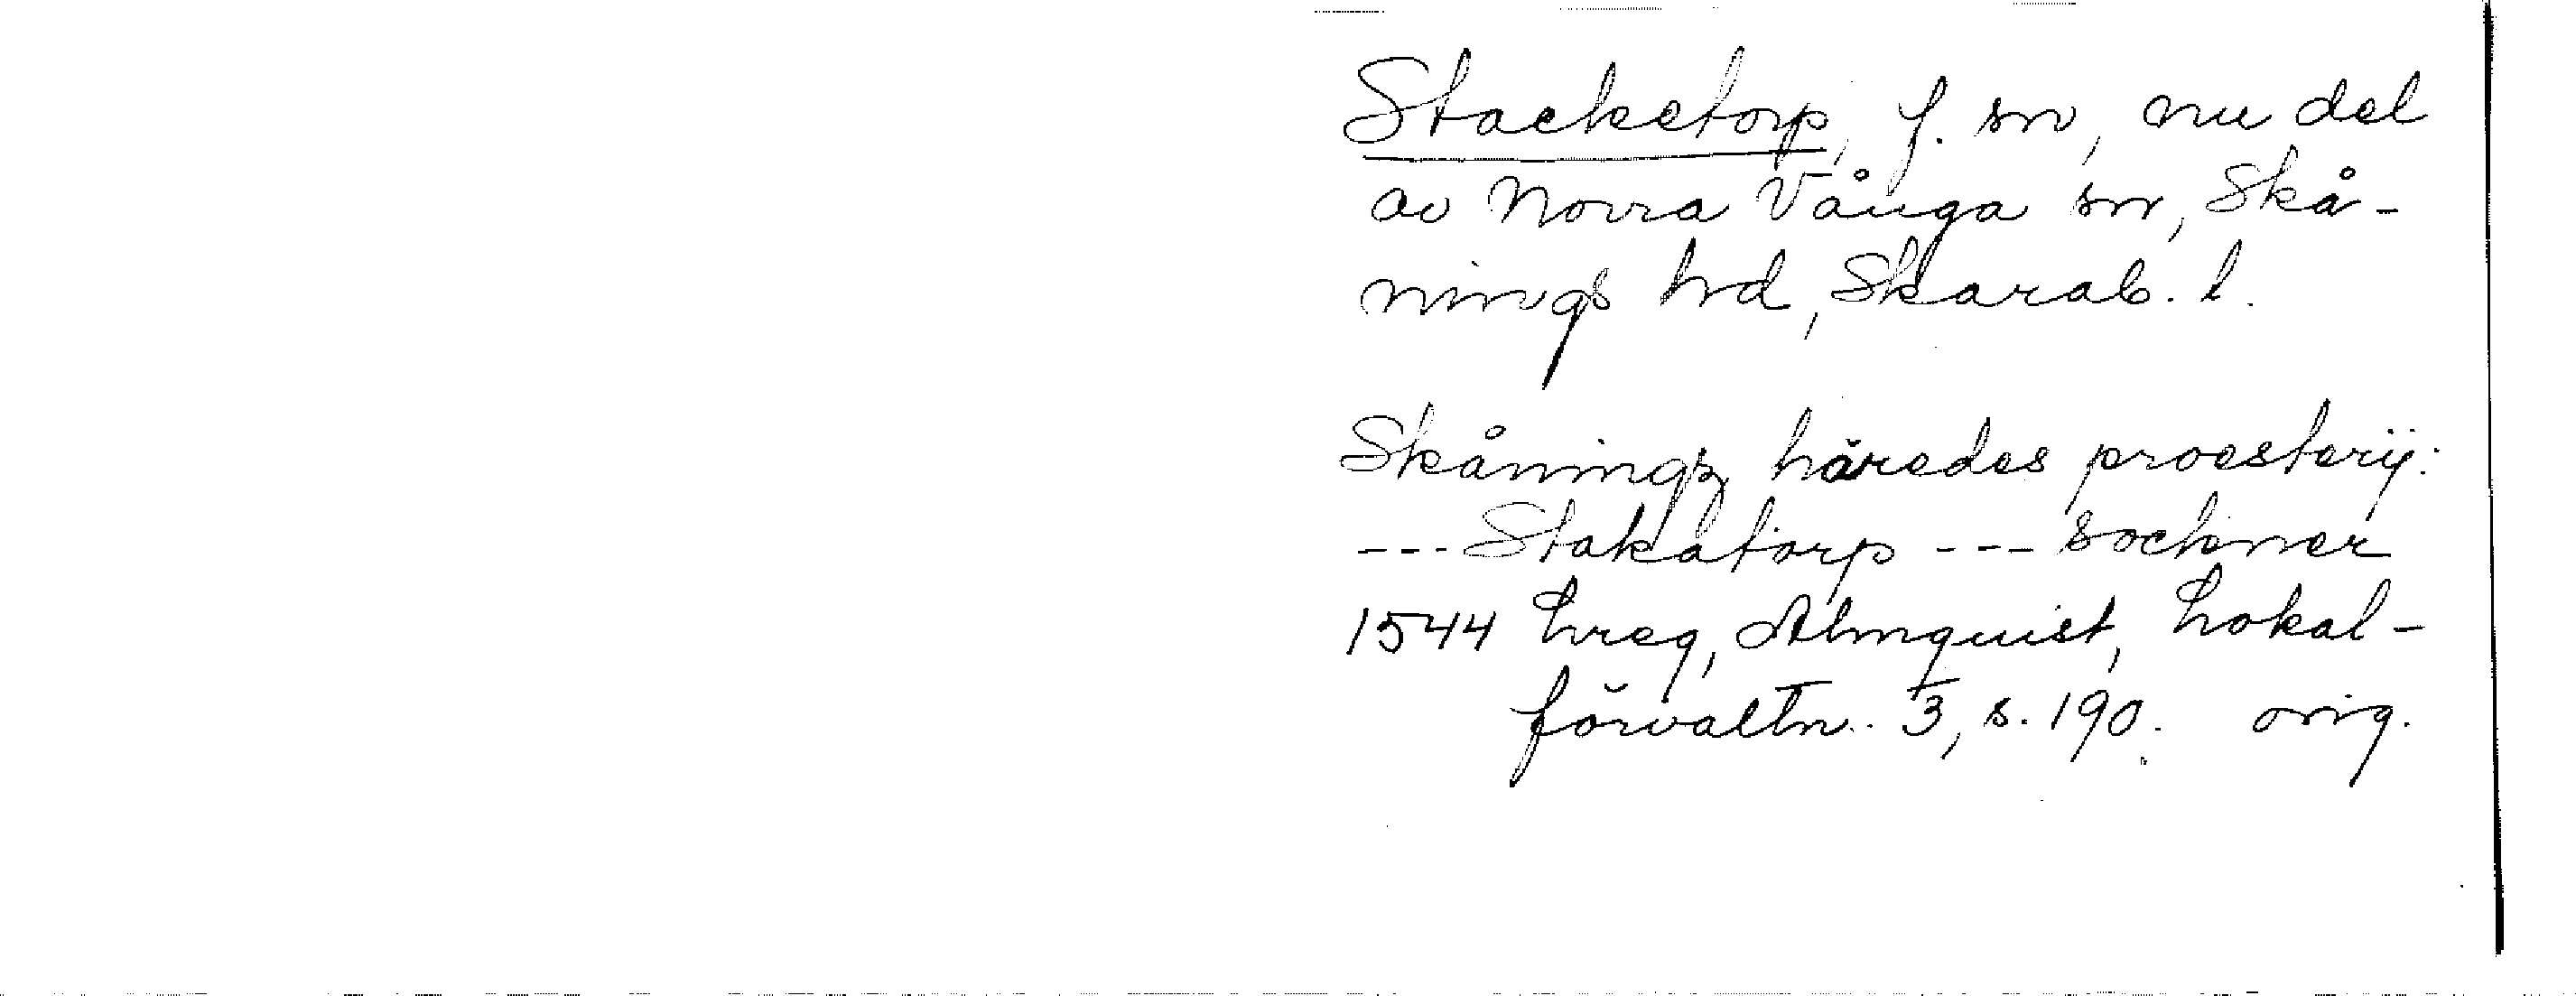 Stacketorp, f. sn, nu del
av Norra Vånga sn, Skå-
nings hd, Skarab. l.
Skåningz häredes proesterij:
--- Stakatorp --- sockner
1544 Lreg, Almquist, Lokal-
förvaltn. 3, s. 190. orig.